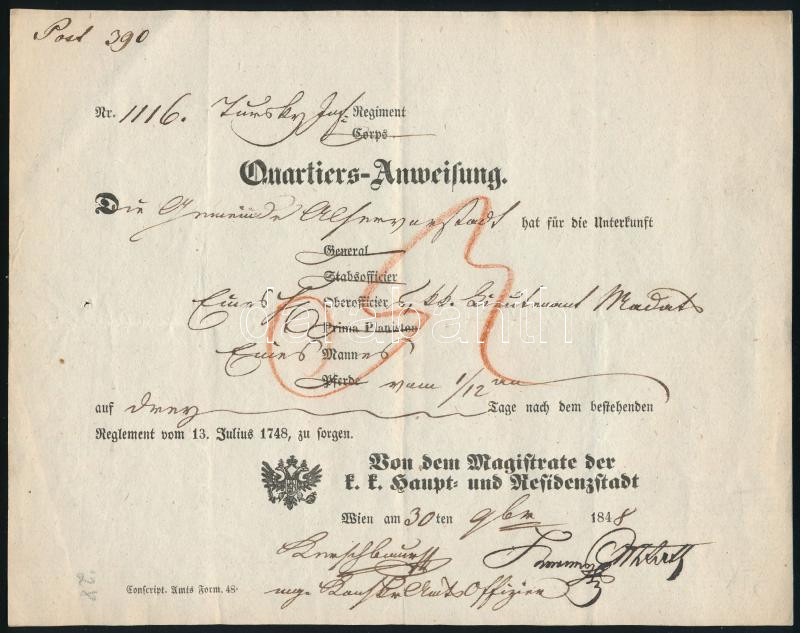 Post 390
Nr. 1116. Tursky Inf. Regiment
Corps
Quartiers-Anweisung.
Die Gemeinde Alservorstadt hat für die Unterkunft
General
Stabsofficier
Eines Oberofficier k. k. Lieutenant Madats
Prima Planisten
Eines Mannes
Pferde vom 1/12 an
auf drey Tage nach dem bestehenden
Reglement vom 13. Julius 1748, zu sorgen.
Von dem Magistrate der
k. k. Haupt- und Residenzstadt
Wien am 30ten 9ber 1848
Offizier
Conscript. Amts Form. 48.
darabanth